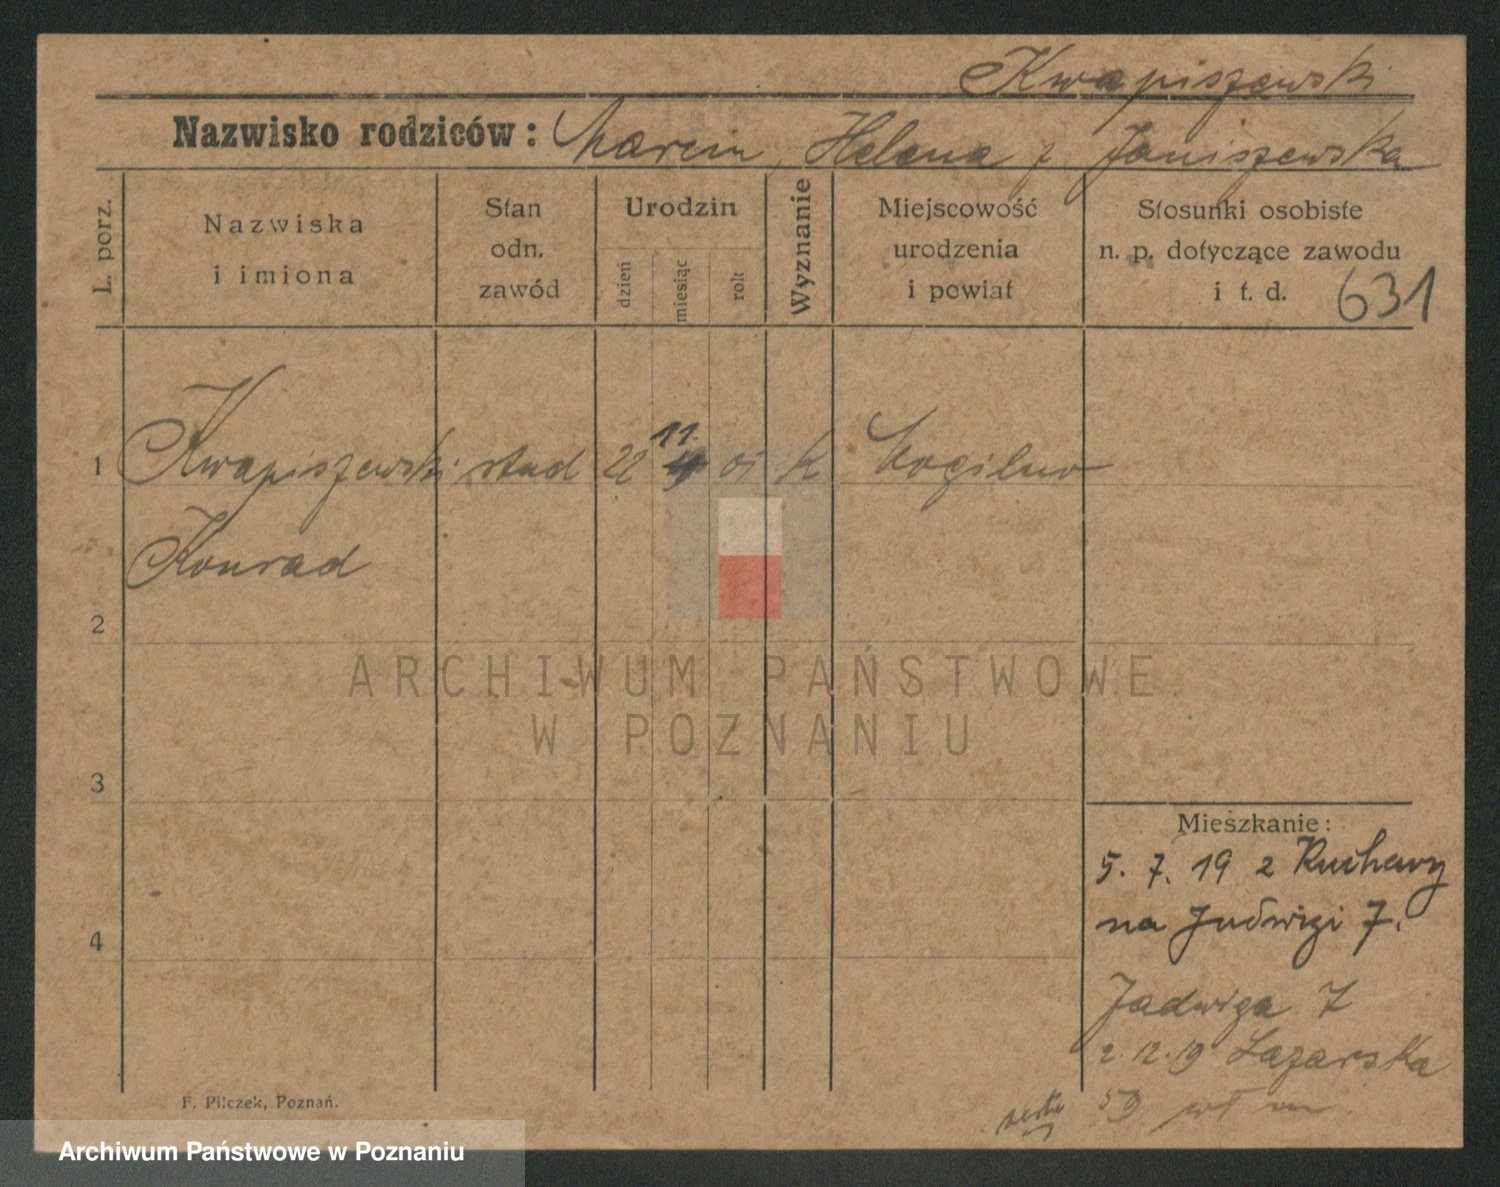 Kwapiszewski
Nazwisko rodziców: Marcin, Helena z Janiszewska
L. porz.
Nazwiska
i imiona
Stan
odn.
zawód
Urodzin
dzień
miesiąc
rok
Wyznanie
Miejscowość
urodzenia
i powiat
Stosunki osobiste
n. p. dotyczące zawodu
i t. d. 631
11.
1 Kwapiszewski stud 22 01 k Mogilno
Konrad
2
3
4
ARCHIWUM PAŃSTWOWE
W POZNANIU
Mieszkanie:
5. 7. 19 z Ruchawy
na Jadwigi 7.
Jadwiga 7
2.12.19 Łazarska
59
F. Pilczek, Poznań.
Archiwum Państwowe w Poznaniu